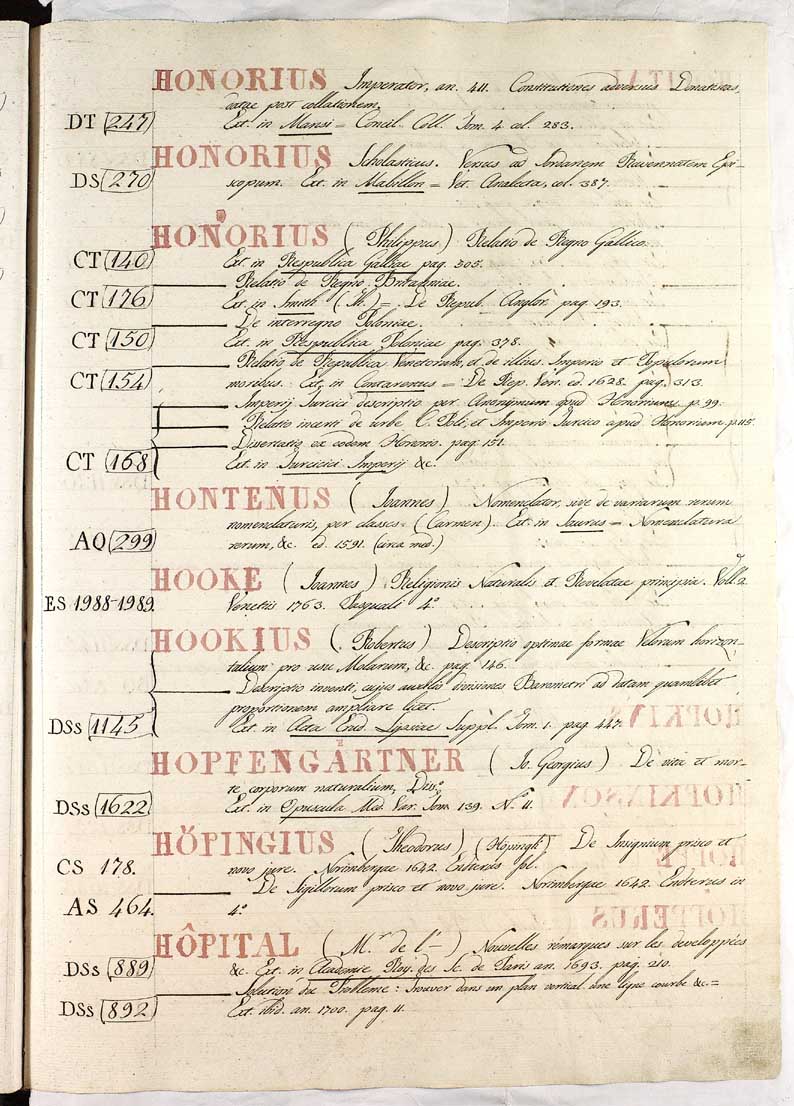 HONORIUS Imperator, an. 411. Constitutiones adversus Donatistas,
datae post collationem.
DT 247 Ext. in Mansi = Concil. Coll. Tom. 4 col. 283.
HONORIUS Scholasticus. Versus ad Jordanem Ravennatem Epi-
DS 270 scopum. Ext. in Mabillon = Vet. Analecta, col. 387.
HONORIUS (Philippus) Relatio de Regno Gallico.
CT 140 Ext. in Respublica Galliae pag. 305.
Relatio de Regno Britanniae.
CT 176 Ext. in Smith (Th.) = De Republ. Anglor. pag. 193.
De interregno Poloniae.
CT 150 Ext. in Respublica Poloniae pag. 378.
Relatio de Republica Venetorum, et de illius Imperio et Populorum
CT 154 moribus. Ext. in Contarenus = De Rep. Ven. ed. 1628. pag. 313.
Imperij Turcici descriptio per Anonymum apud Honorium p. 99.
Relatio incerti de urbe C. Poli, et Imperio Turcico apud Honorium p. 115.
Dissertatio ex eodem Honorio. pag. 151.
CT 168 Ext. in Turcici Imperij &c.
HONTENUS (Joannes) Nomenclator, sive de variarum rerum
nomenclaturis, per classes. (Carmen). Ext. in Taurus = Nomenclatura
AQ 299 rerum, &c. ed. 1591. (circa med.)
HOOKE (Joannes) Religionis Naturalis et Revelatae principia. Voll. 2
ES 1988-1989. Venetiis 1763. Pasquali 4.º
HOOKIUS (Robertus) Descriptio optimae formae Velorum horizon-
talium pro usu Molarum, &c. pag. 146.
Descriptio inventi, cujus auxilio divisiones Barometri ad datam quamlibet
proportionem ampliare licet.
DSs 1145 Ext. in Acta Erud. Lipsiae Suppl. Tom. 1. pag. 447.
HOPFENGÄRTNER (Jo. Georgius) De vita et mor-
te corporum naturalium, Diss.º
DSs 1622 Ext. in Opuscula Med. Var. Tom. 139. N.º 11.
HÖPINGIUS (Theodorus) (Höpingk) De Insignium prisco et
CS 178. novo jure. Norimbergae 1642. Endterus fol.
De Sigillorum prisco et novo jure. Norimbergae 1642. Endterus in
AS 464. 4.º
HÔPITAL (M.r de l'—) Nouvelles rémarques sur les developpées
DSs 889 &c. Ext. in Academie Roy. des Sc. de Paris an. 1693. pag. 210.
Solution du Probleme: Trouver dans un plan vertical une ligne courbe &c. =
DSs 892 Ext. ibid. an. 1700. pag. 11.